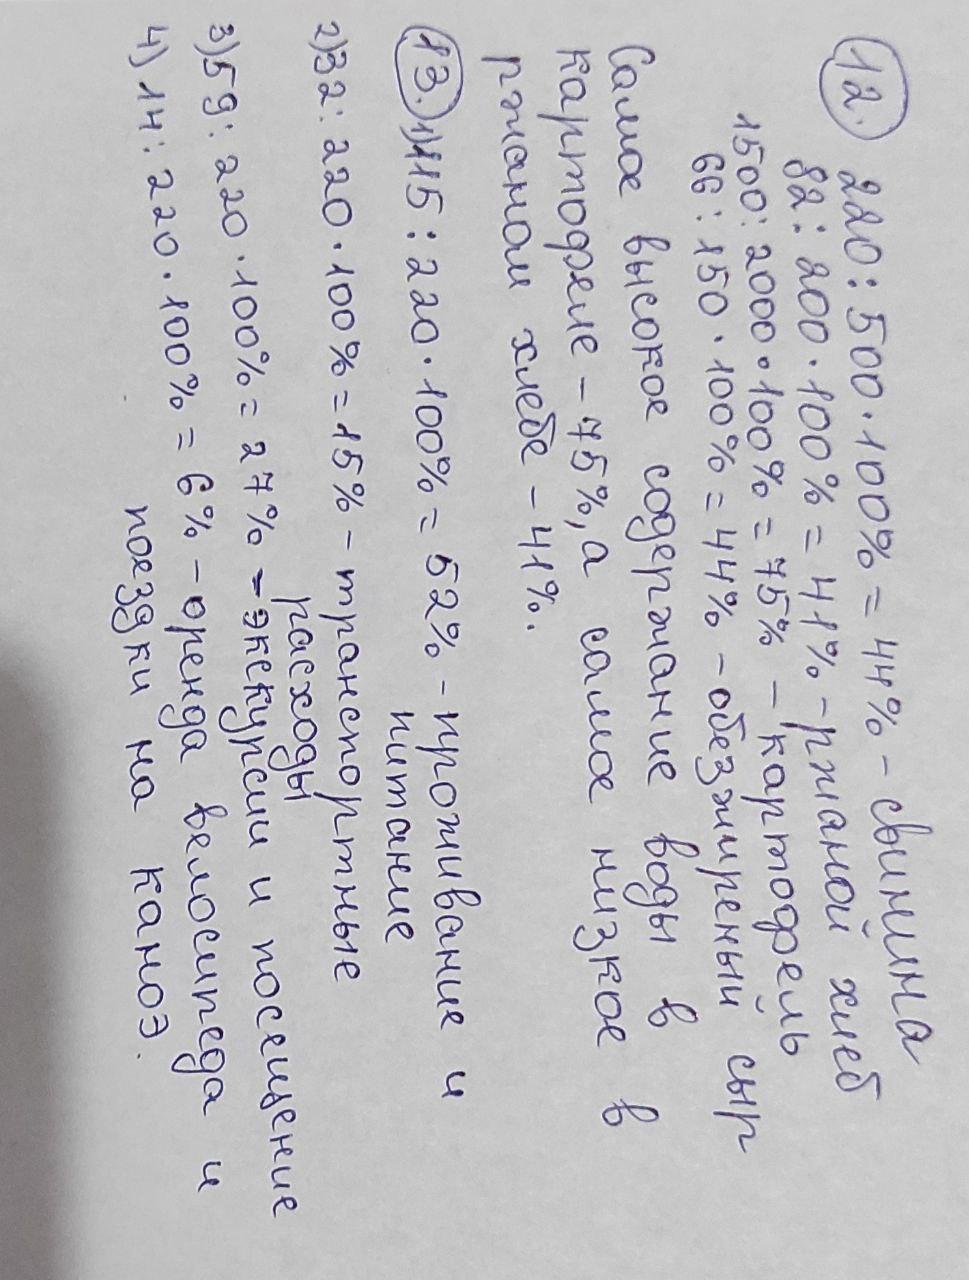 12. 220 : 500 · 100% = 44% - свинина
82 : 200 · 100% = 41% - ржаной хлеб
1500 : 2000 · 100% = 75% - картофель
66 : 150 · 100% = 44% - обезжиреный сыр
Самое высокое содержание воды в
картофеле - 75%, а самое низкое в
ржаном хлебе - 41%.
13. 1) 115 : 220 · 100% = 52% - проживание и
питание
2) 32 : 220 · 100% = 15% - транспортные
расходы
3) 59 : 220 · 100% = 27% - экскурсии и посещение
4) 14 : 220 · 100% = 6% - оренда велосипеда и
поездки на каноэ.